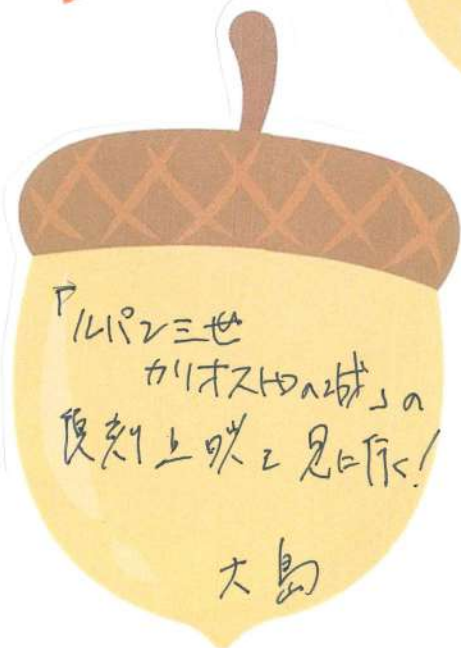 『ルパン三世
カリオストロの城』の
復刻上映を見に行く!
大島